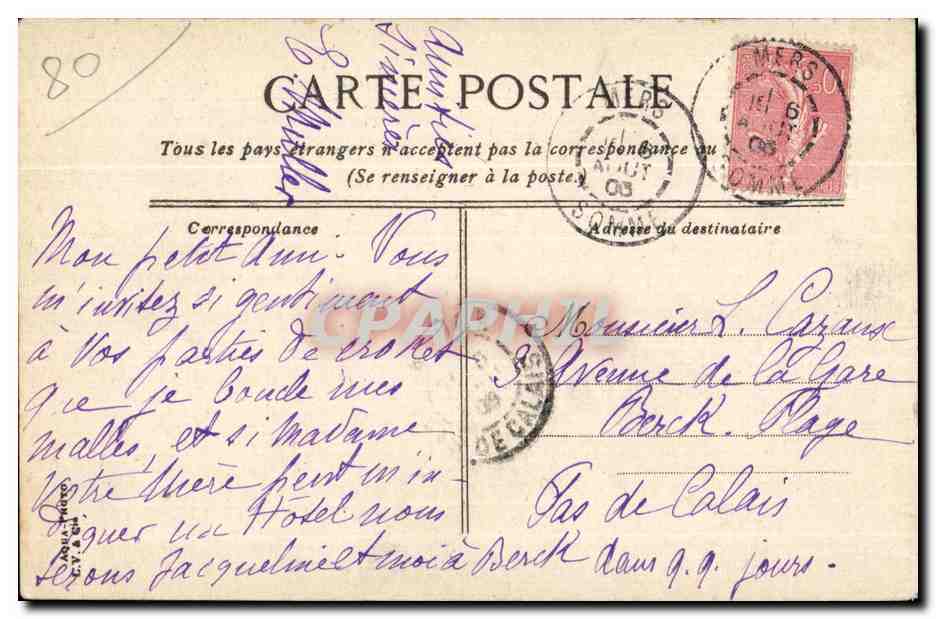 80
Amitiés
sincères
E. Muller
CARTE POSTALE
Tous les pays étrangers n'acceptent pas la correspondance au
(Se renseigner à la poste.)
MERS
6
AOUT
03
SOMME
MERS
6
AOUT
03
SOMME
50
Correspondance
Adresse du destinataire
Mon petit Ami. Vous
m'invitez si gentiment
à vos parties de croket
que je boucle mes
malles, et si Madame
Votre Mère peut m'in-
diquer un Hôtel nous
serons Jacqueline et moi à Berck dans q.q. jours.
CPAPHIL
DE CALAIS
Monsieur L. Cazaux
Avenue de la Gare
Berck. Plage
Pas de Calais
AQUA-PHOTO
L.V. & Cie